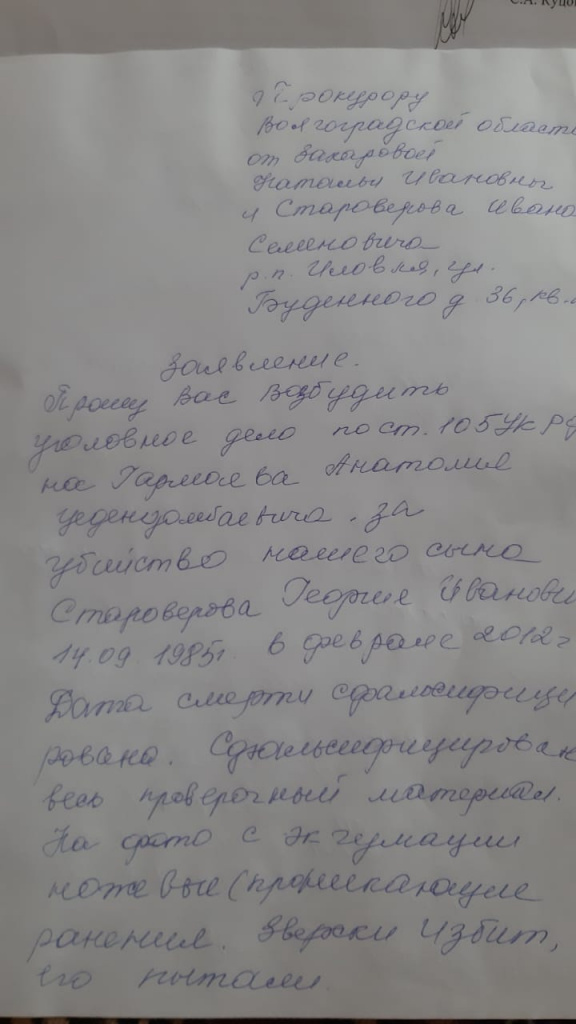 С.А. Куцов
Прокурору
Волгоградской области
от Захаровой
Натальи Ивановны
и Староверова Ивана
Семеновича
р.п. Иловля, ул.
Буденного д. 36, кв.
Заявление.
Прошу Вас Возбудить
уголовное дело по ст. 105 УК РФ
на Гармаева Анатолия
Цедендамбаевича. за
убийство нашего сына
Староверова Георгия Иванови
14.09 1985г. в феврале 2012г
Дата смерти сфальсифици
рована. Сфальсифицирован
весь проверочный материал.
На фото с эксгумации
ножевые (проникающие
ранения. Зверски избит,
его пытали.